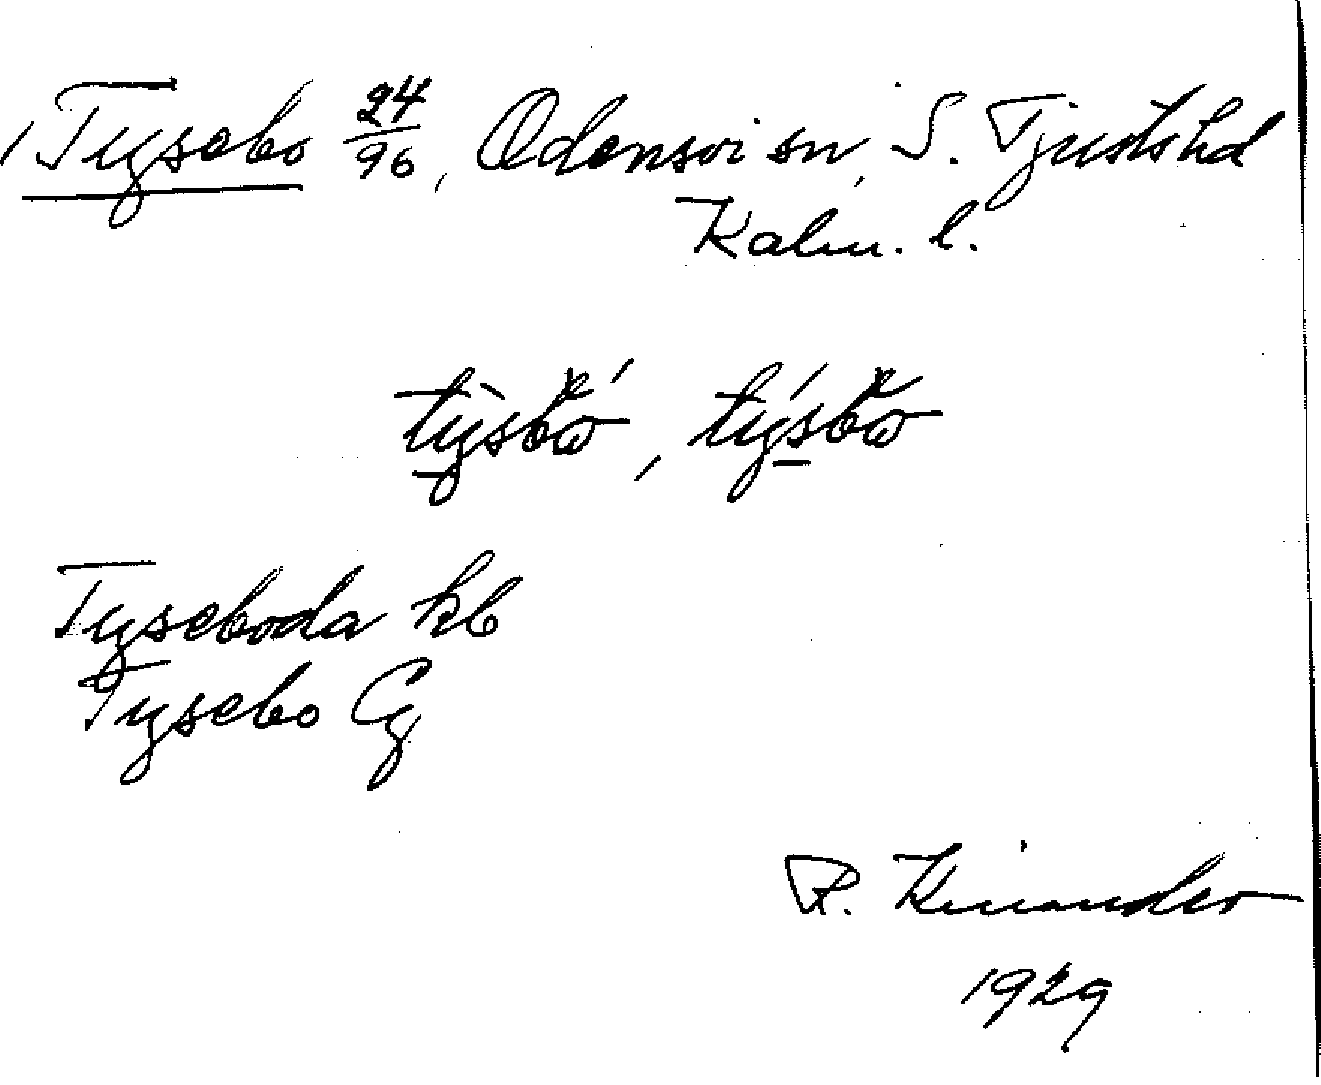 Tysebo 24/96, Odensvi sn, S. Tjusts hd
Kalm. l.
Tyseboda kb
Tysebo Cg
R. Kinander
1929